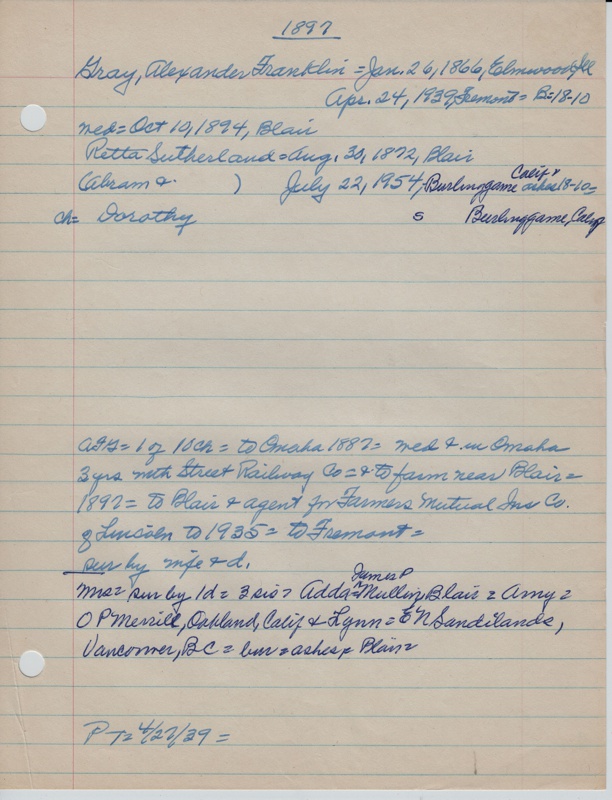 1897
Gray, Alexander Franklin = Jan. 26, 1866, Elmwood, Ill
Apr. 24, 1939, Fremont = B = 18-10
wed = Oct 10, 1894, Blair
Retta Sutherland = Aug. 30, 1872, Blair
(Abram & ) July 22, 1954, Burlinggame Calif & ashes 18-10 =
ch = Dorothy s Burlinggame, Calif
AFG = 1 of 10 ch = to Omaha 1887 = wed & in Omaha
3 yrs with Street Railway Co = & to farm near Blair =
1897 = to Blair & agent for Farmers Mutual Ins Co.
of Lincoln to 1935 = to Fremont =
sur by wife & d.
Mrs = sur by 1d = 3 sis = Adda = James P Mullin, Blair = Amy =
O P Merrill, Oakland, Calif & Lynn = E N Sandilands,
Vancouver, BC = bur = ashes = Blair =
P T = 4/27/39 =